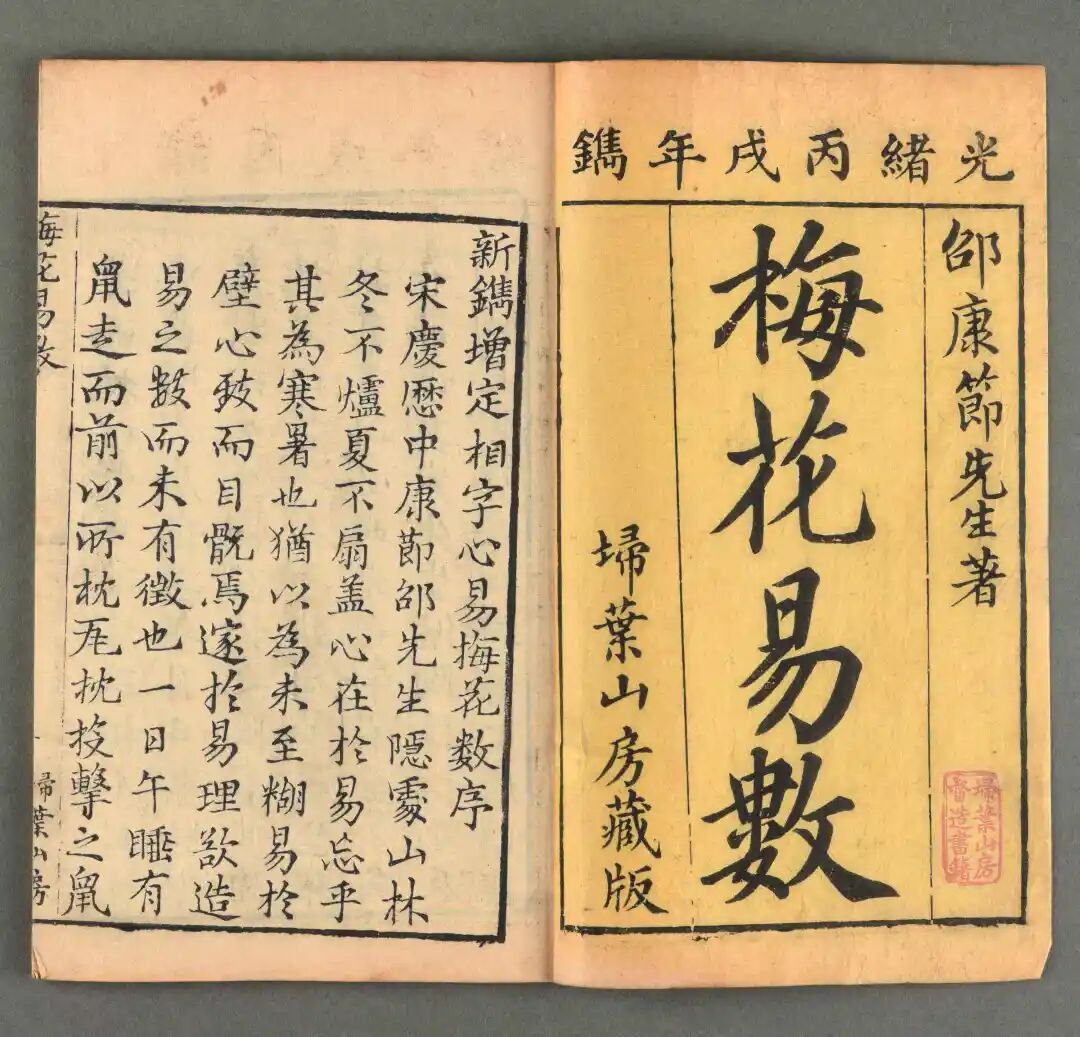 光緒丙戌年鐫
邵康節先生著
梅花易數
埽葉山房藏版
埽葉山房
督造書籍
新鐫增定相字心易梅花数序
宋慶曆中康節邵先生隱處山林
冬不爐夏不扇盖心在於易忘乎
其為寒暑也猶以為未至糊易於
壁心致而目翫焉邃於易理欲造
易之數而未有徵也一日午睡有
鼠走而前以所枕瓦枕投擊之鼠
梅花易数
埽葉山房